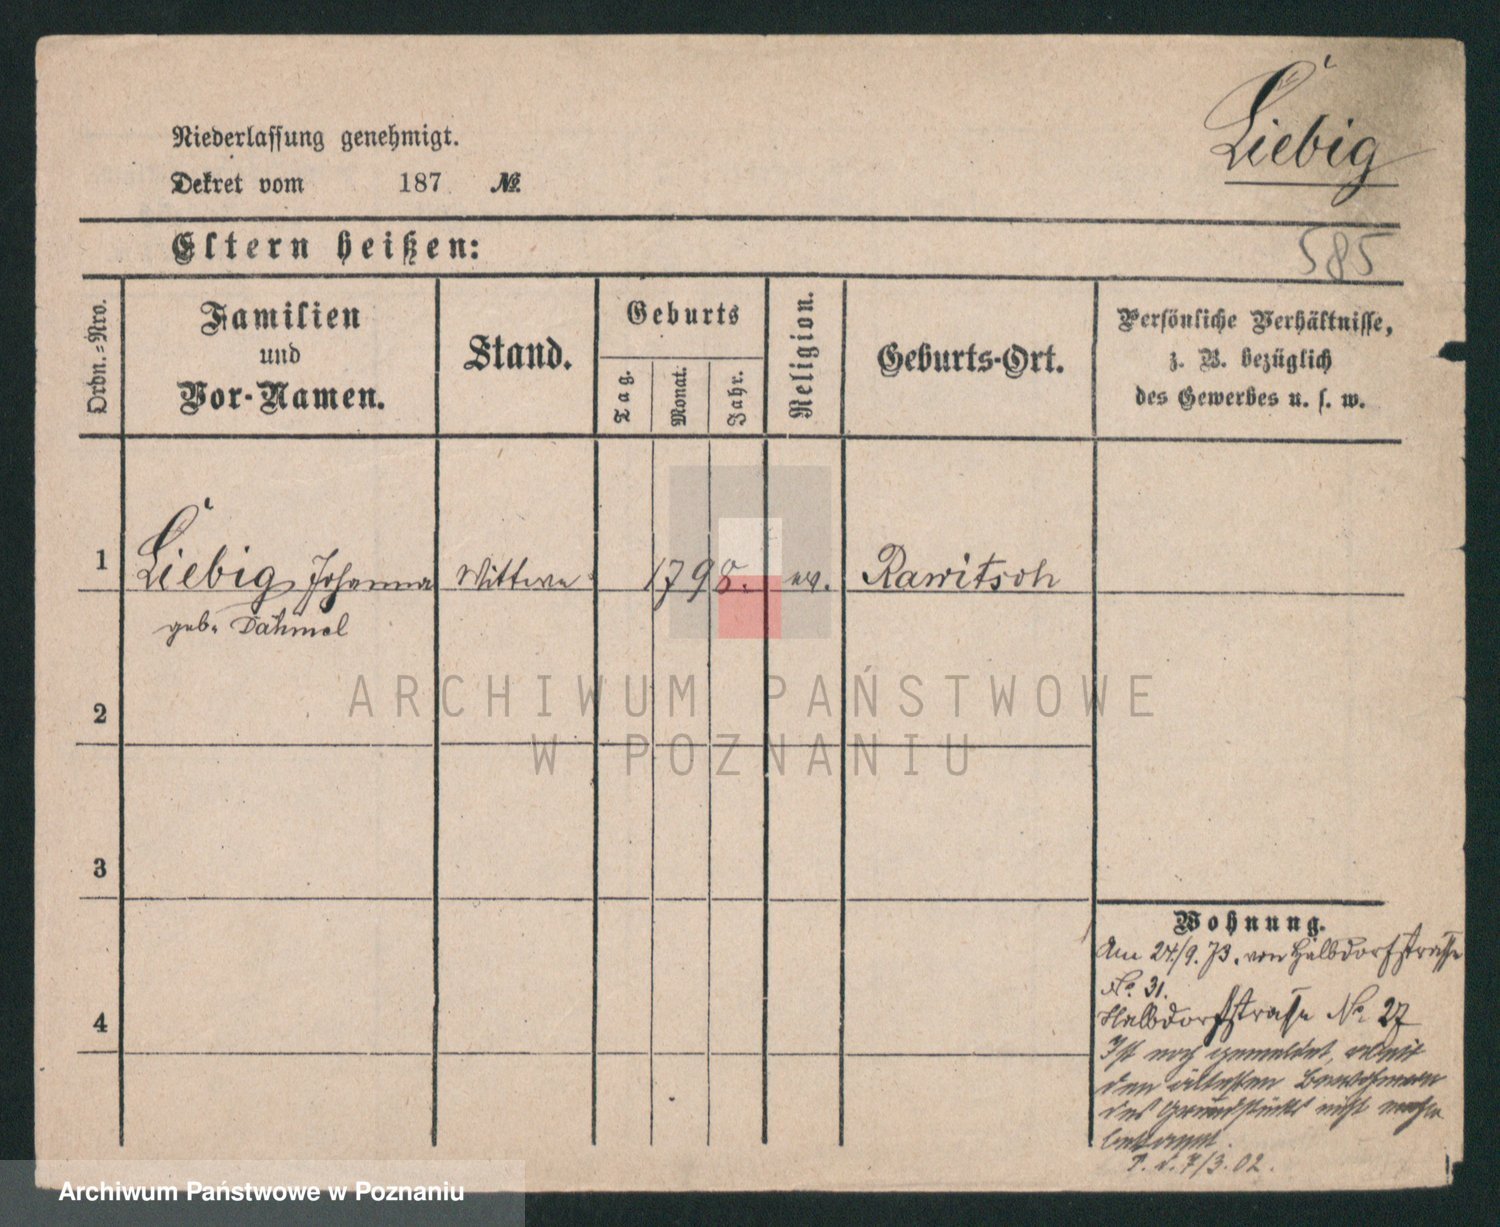 Liebig
Niederlassung genehmigt.
Dekret vom 187 №
Eltern heißen:
585
Ordn.-Nro.
Familien
und
Vor-Namen.
Stand.
Geburts
Tag.
Monat.
Jahr.
Religion.
Geburts-Ort.
Persönliche Verhältnisse,
z. B. bezüglich
des Gewerbes u. s. w.
1 Liebig Johanna Wittwe 1798. ev. Rawitsch
geb. Dähmel
2
3
4
Wohnung.
Am 24/9. 73. von Halbdorfstrasse
No. 31.
Halbdorfstrasse No. 27
Ist noch gemeldet,
den ältesten Bewohnern
des Grundstücks nicht mehr
bekannt.
7/3. 02.
ARCHIWUM PAŃSTWOWE
W POZNANIU
Archiwum Państwowe w Poznaniu